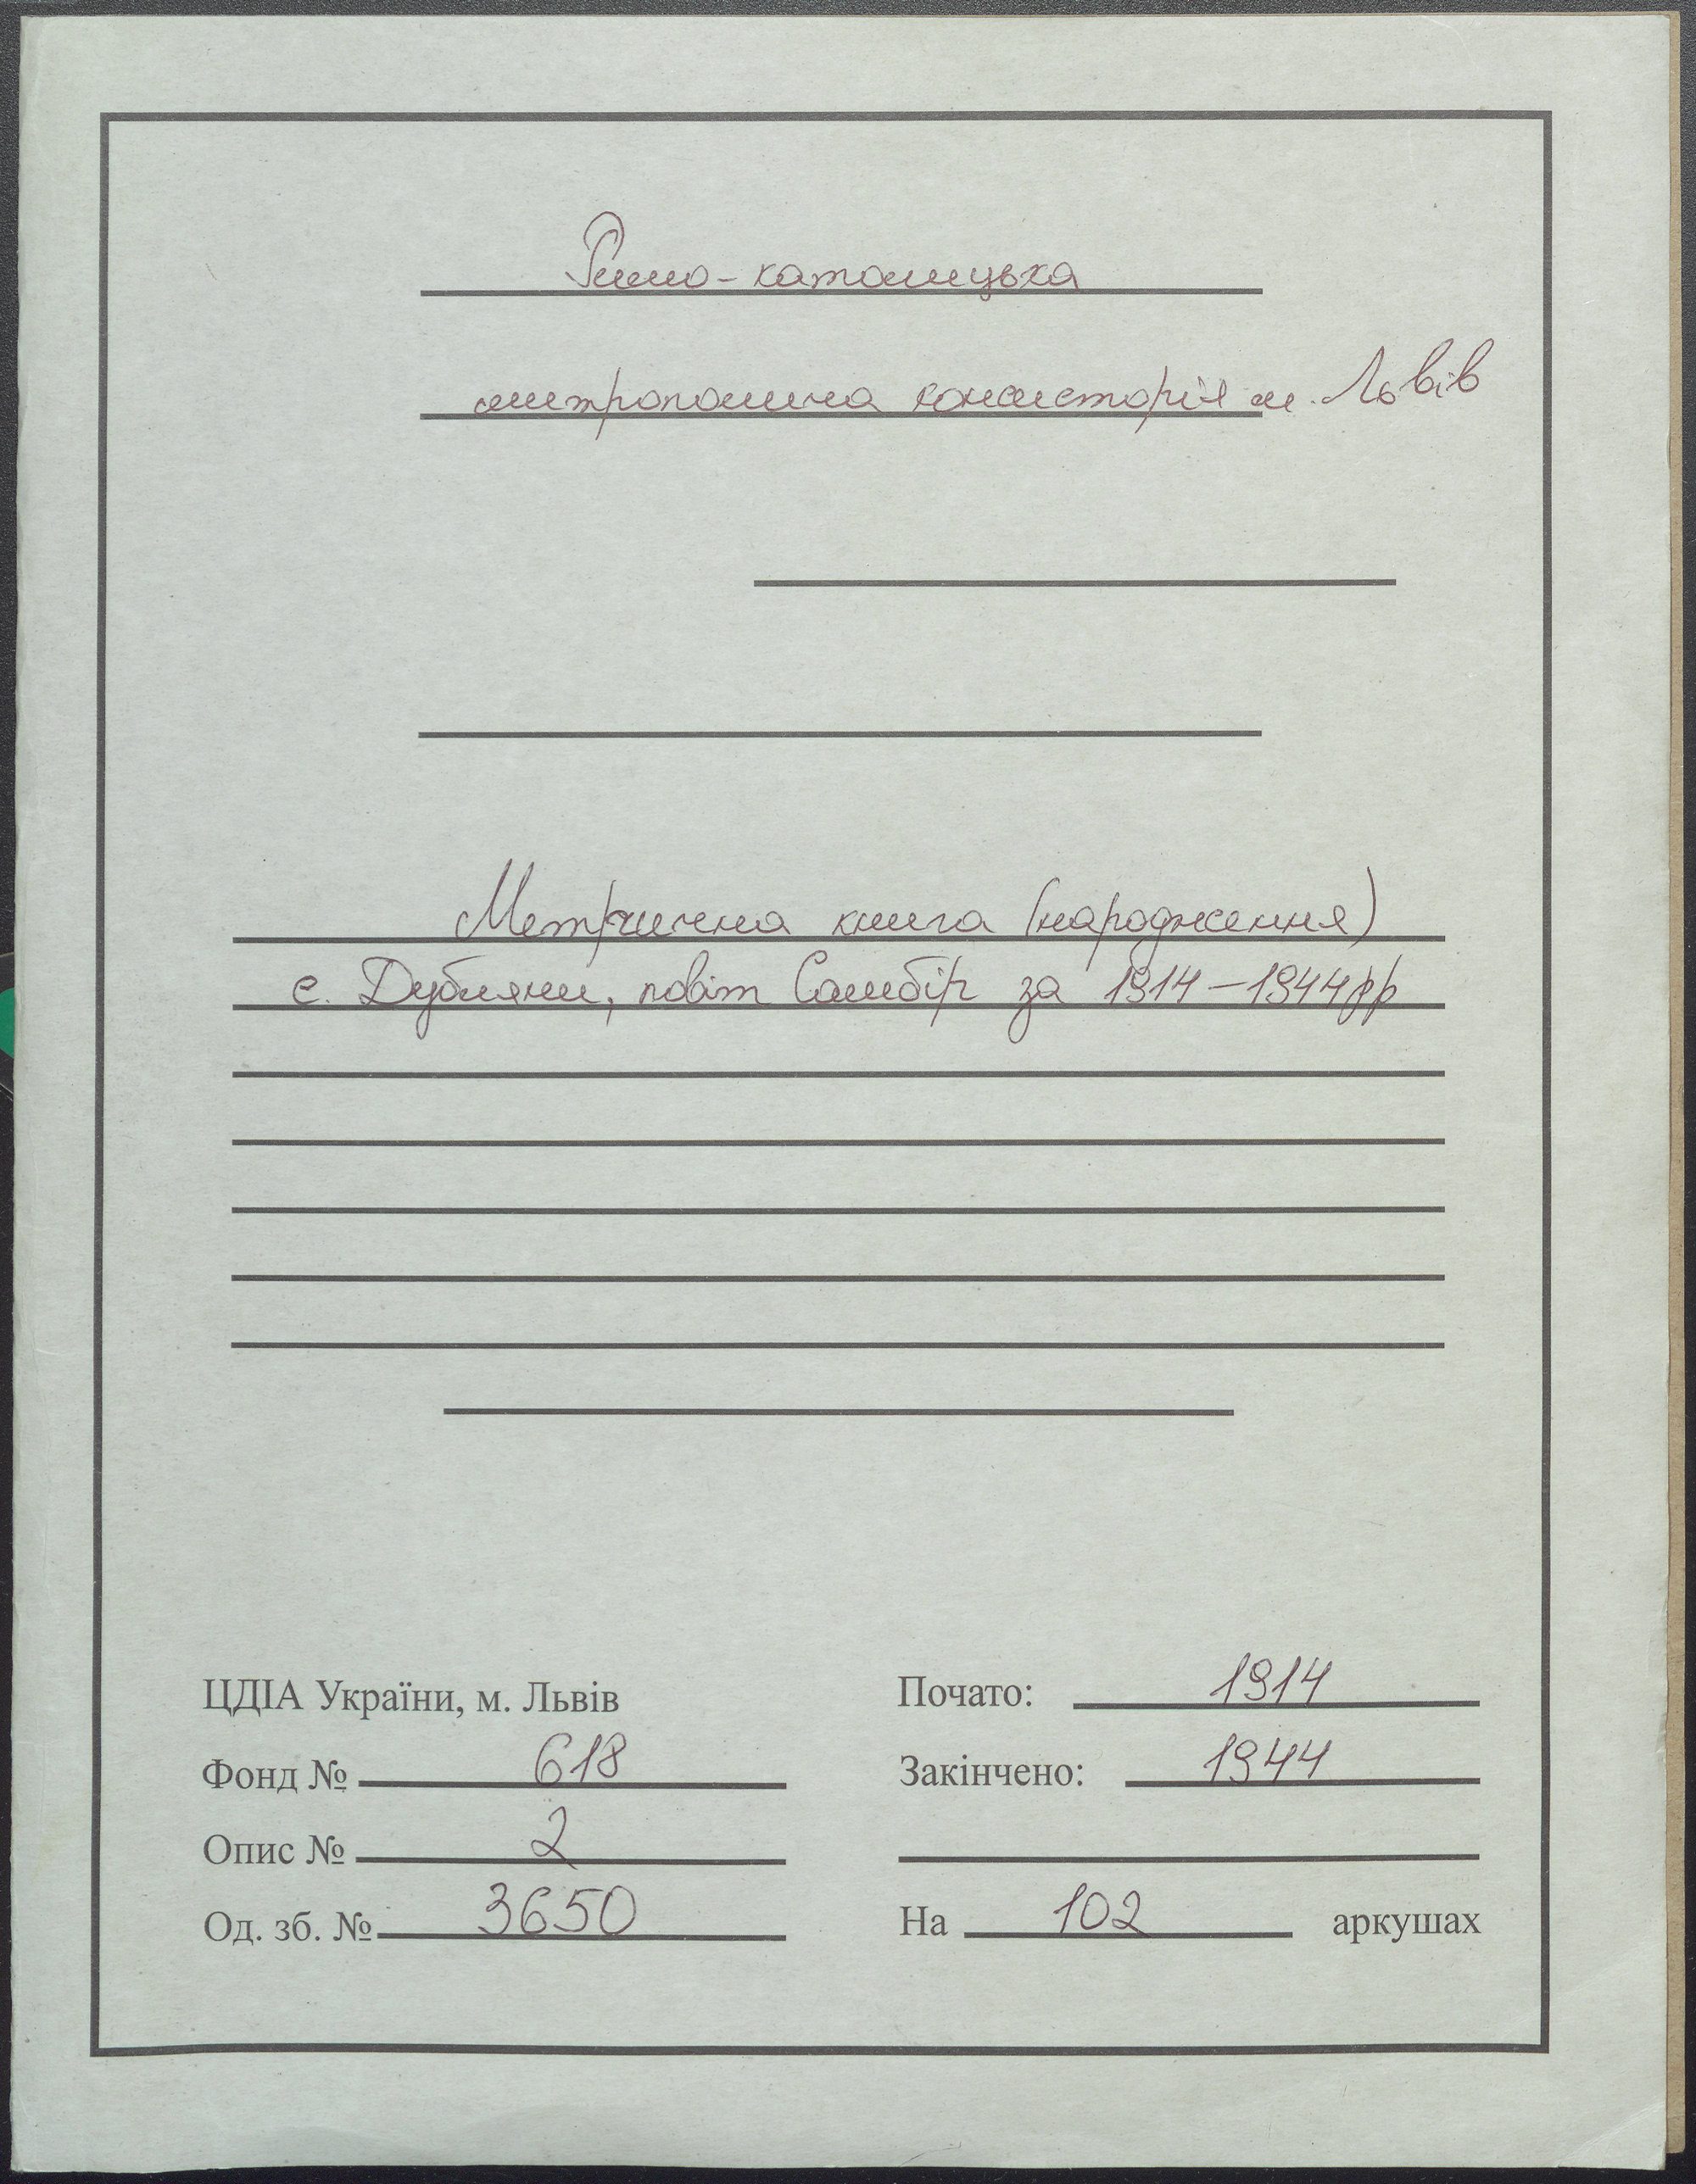 Римо-католицька
митрополича консисторія м. Львів
Метрична книга (народження)
с. Дубляни, повіт Самбір за 1914-1944рр
ЦДІА України, м. Львів
Фонд № 618
Опис № 2
Од. зб. № 3650
Почато: 1914
Закінчено: 1944
На 102 аркушах